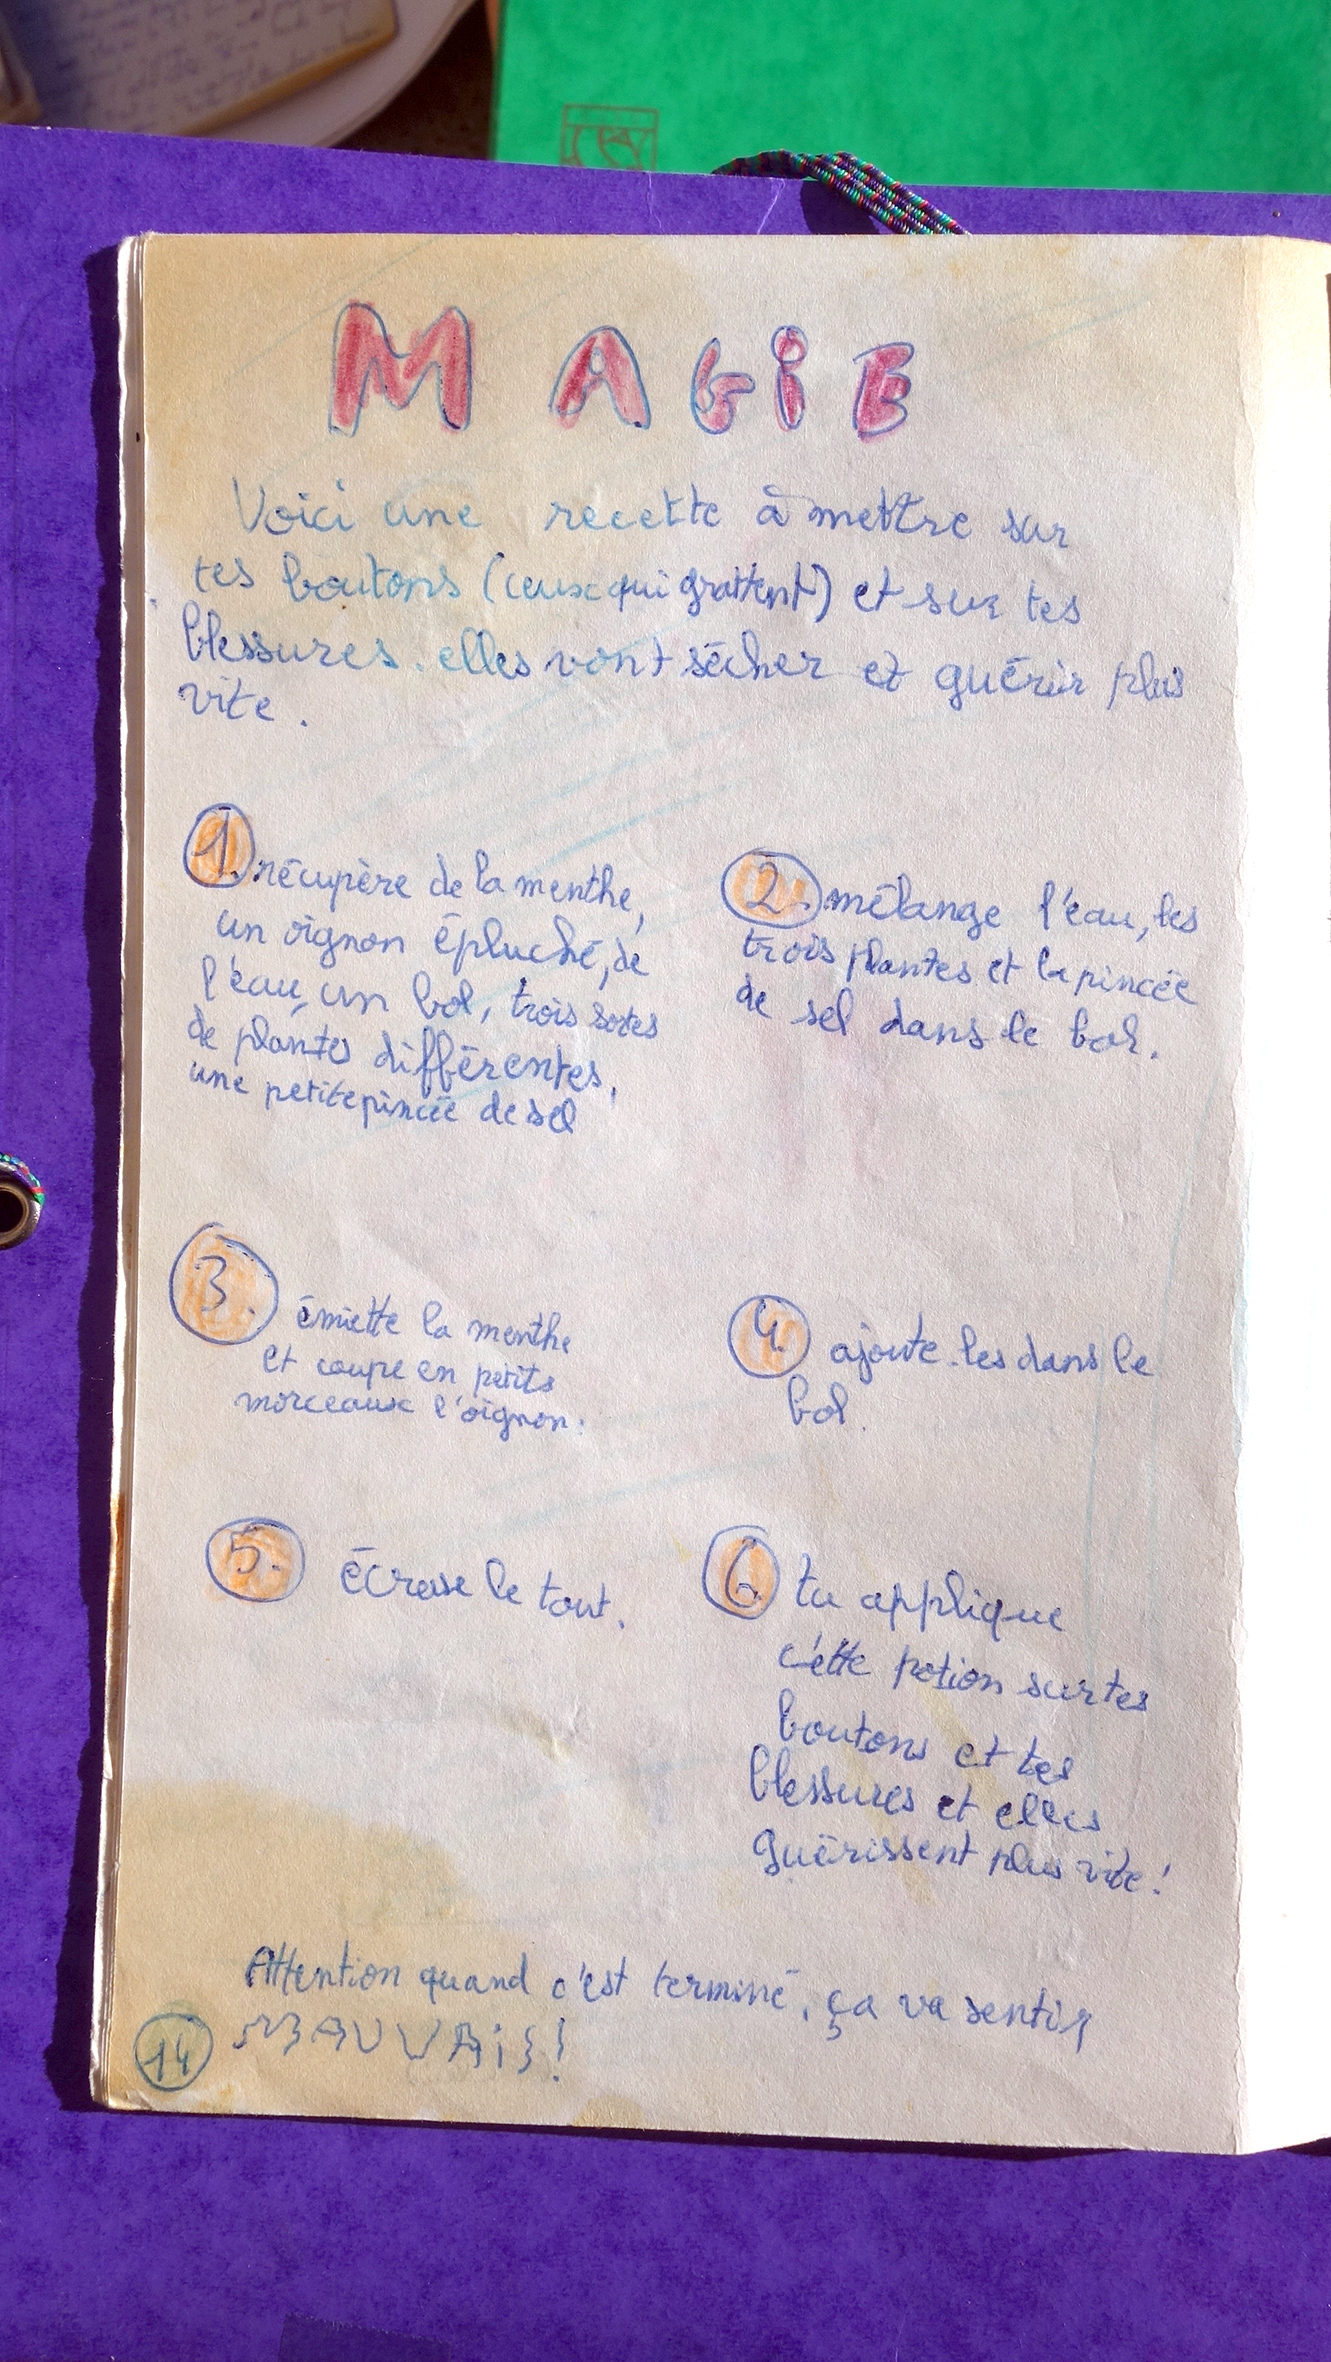 MAGiE
Voici une recette à mettre sur
tes boutons (ceux qui grattent) et sur tes
blessures. elles vont sécher et guérir plus
vite.
1. récupère de la menthe,
un oignon épluché, de
l'eau, un bol, trois sortes
de plantes différentes,
une petite pincée de sel
2. mélange l'eau, les
trois plantes et la pincée
de sel dans le bol.
3. émiette la menthe
et coupe en petits
morceaux l'oignon.
4. ajoute-les dans le
bol.
5. écrase le tout.
6. tu applique
cette potion sur tes
boutons et tes
blessures et elles
guérissent plus vite!
Attention quand c'est terminé, ça va sentir
MAUVAiS!
14